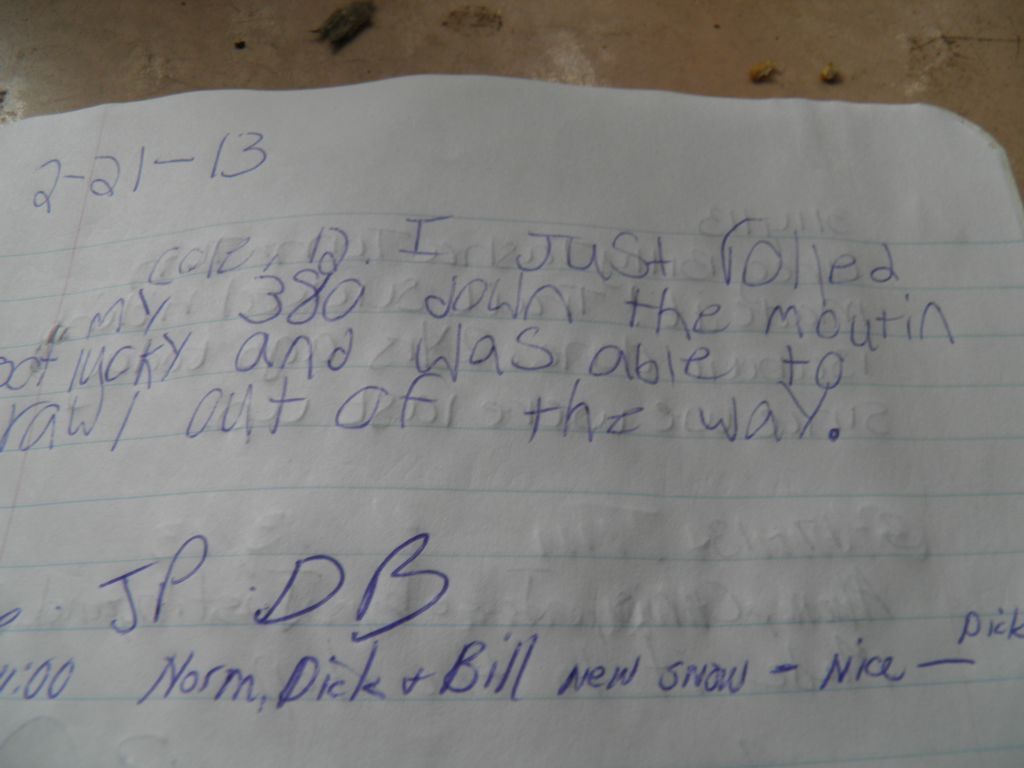 2-21-13
cole, D. I Just rolled
my 380 down the moutin
ot lucky and was able to
rawl out of the way.
JP. DB
Dick
1:00 Norm, Dick + Bill new snow - Nice -